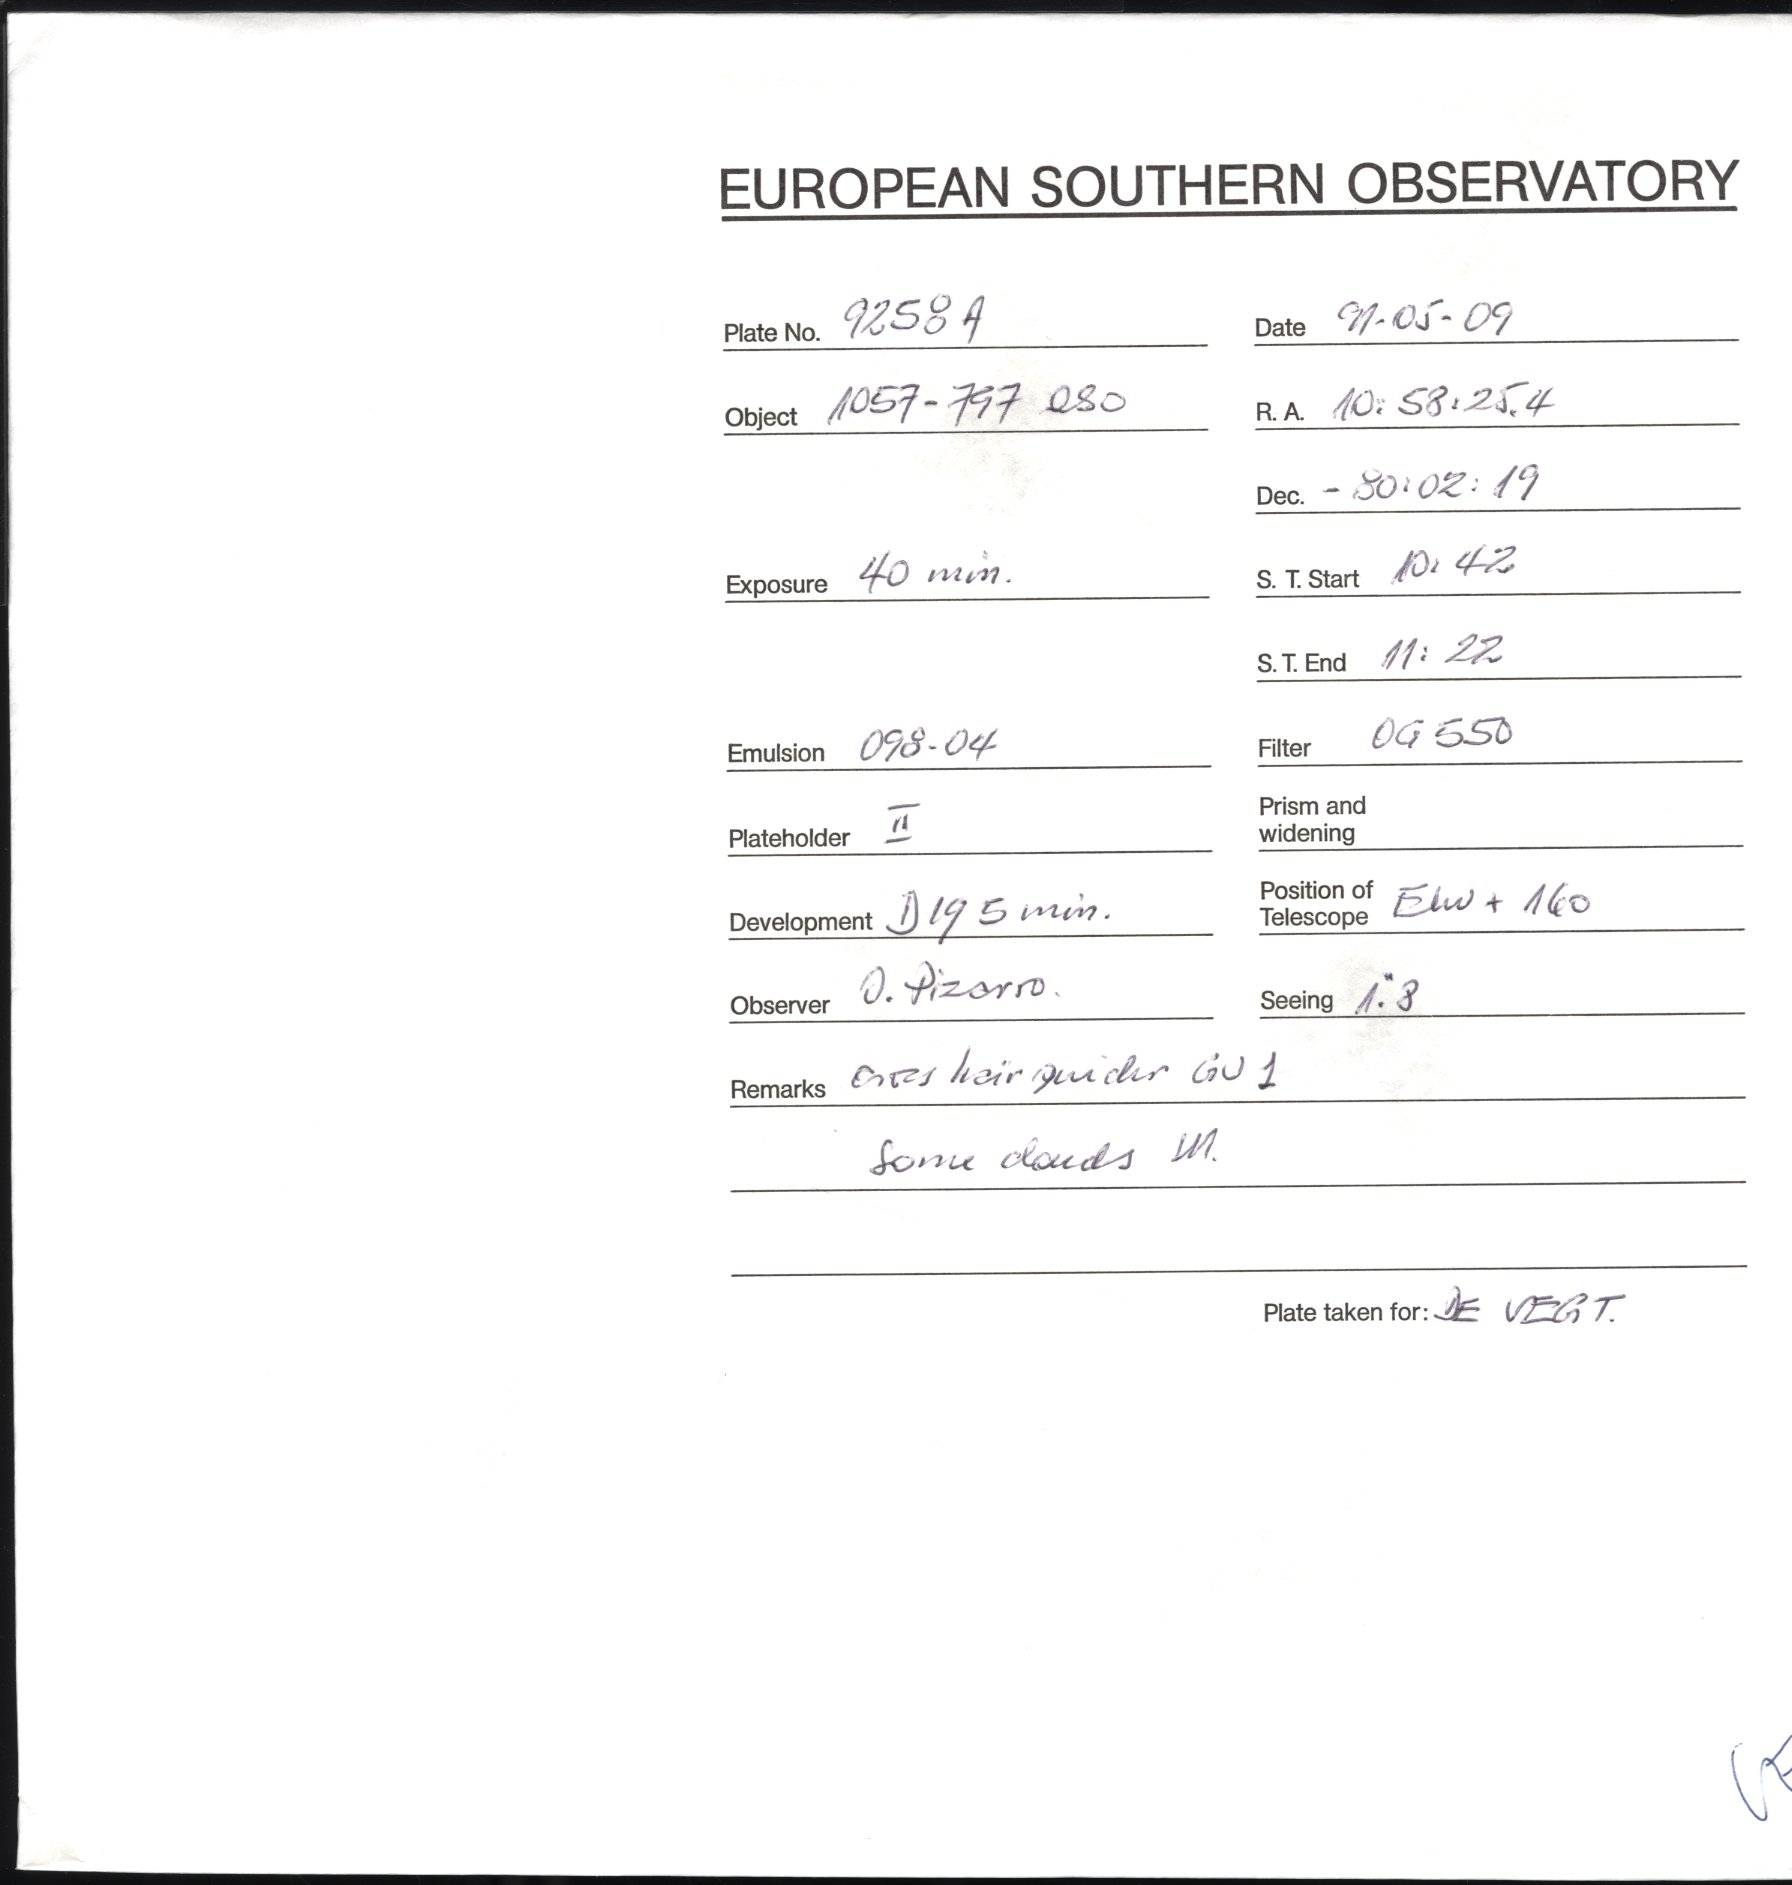 EUROPEAN SOUTHERN OBSERVATORY
Plate No. 9258 A
Date 91-05-09
Object 1057-797 QSO
R. A. 10:58:25.4
Dec. - 80:02:19
Exposure 40 min.
S. T. Start 10:42
S. T. End 11:22
Emulsion 098-04
Filter OG 550
Plateholder II
Prism and
widening
Development D19 5 min.
Position of
Telescope EW + 160
Observer O. Pizarro.
Seeing 1.″8
Remarks cross hair guider GU 1
Some clouds !!!.
Plate taken for: DE VEGT.